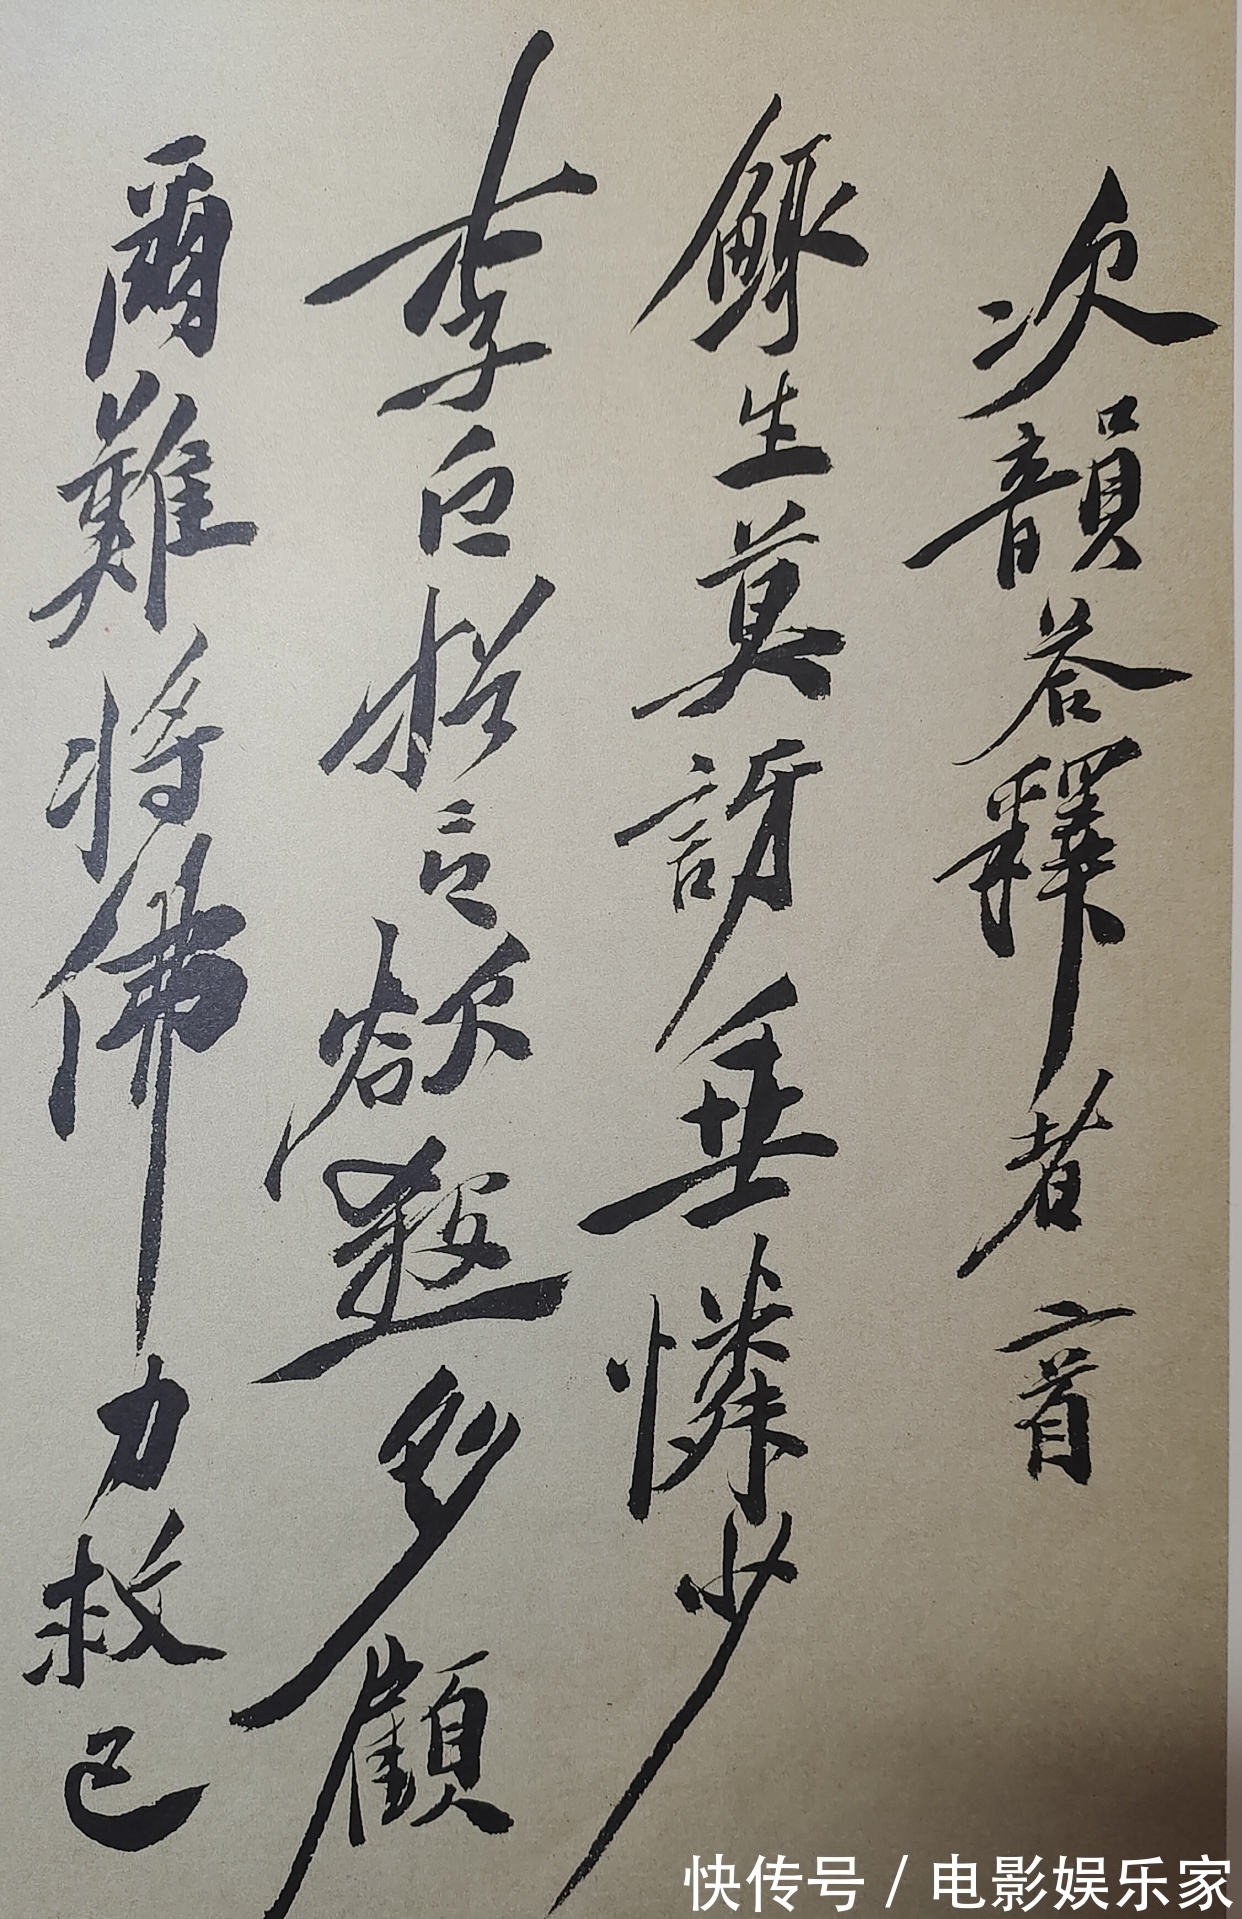 次韻答釋者二首
鯫生莫訝垂憐少
李白言欲殺多顧
爾難將佛力救已
快传号/电影娱乐家